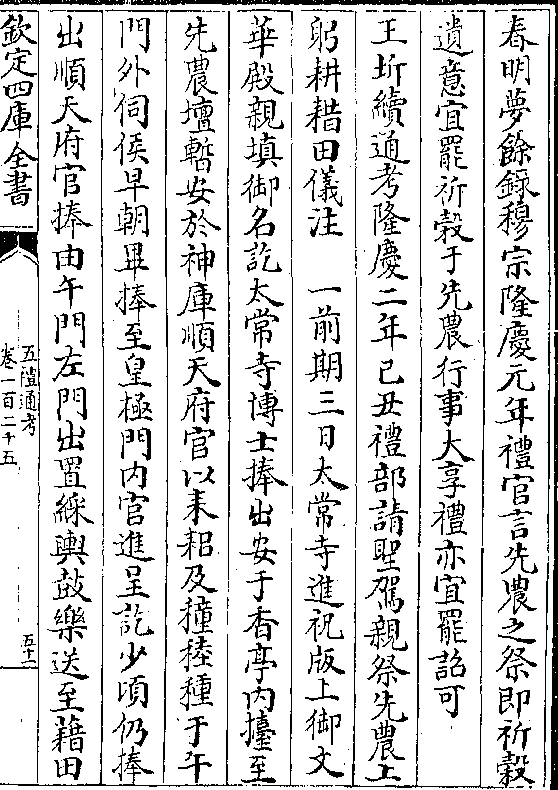 春明夢餘録穆宗隆慶元年禮官言先農之祭即祈穀
遺意宜罷祈穀于先農行事大享禮亦宜罷詔可
王圻續通考隆慶二年己丑禮部請聖駕親祭先農上
躬耕耤田儀注　一前期三日太常寺進祝版上御文
華殿親填御名訖太常寺博士捧出安于香亭内擡至
先農壇暫安於神庫順天府官以耒耜及穜稑種于午
門外伺侯早朝畢捧至皇極門内官進呈訖少頃仍捧
出順天府官捧由午門左門出置綵輿鼓樂送至藉田
欽定四庫全書
五禮通考
卷一百二十五
五十一